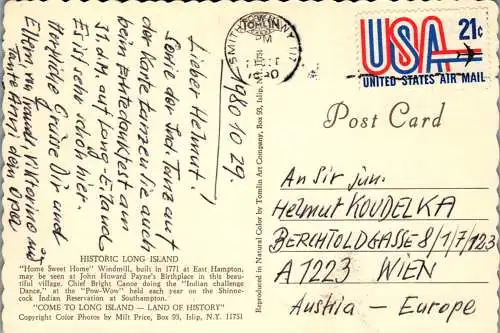 Lieber Helmut!
Sowie der Ind. Tanz auf
der Karte tanzen sie auch
beim Erntedankfest am
auf Long-Island
Es ist sehr schön hier.
Herzliche Grüsse Dir und
Eltern von Traudl, Viktorino und
Tante Anni dein Opa
1980 10 29.
HISTORIC LONG ISLAND
"Home Sweet Home" Windmill, built in 1771 at East Hampton,
may be seen at John Howard Payne's Birthplace in this
beautiful village. Chief Bright Canoe doing the "Indian challenge
Dance," at the "Pow-Wow" held each year on the Shinne-
cock Indian Reservation at Southampton.
"COME TO LONG ISLAND — LAND OF HISTORY"
Copyright Color Photos by Milt Price, Box 93, Islip, N.Y. 11751
Reproduced in Natural Color by Tomlin Art Company, Box 93, Islip, N.Y. 11751
SMITHTOWN NY 117
PM
USA 21c
UNITED STATES AIR MAIL
Post Card
An Sir jun.
Helmut KOUDELKA
BERCHTOLDGASSE 8/1/7/123
A 1223 WIEN
Austria - Europe